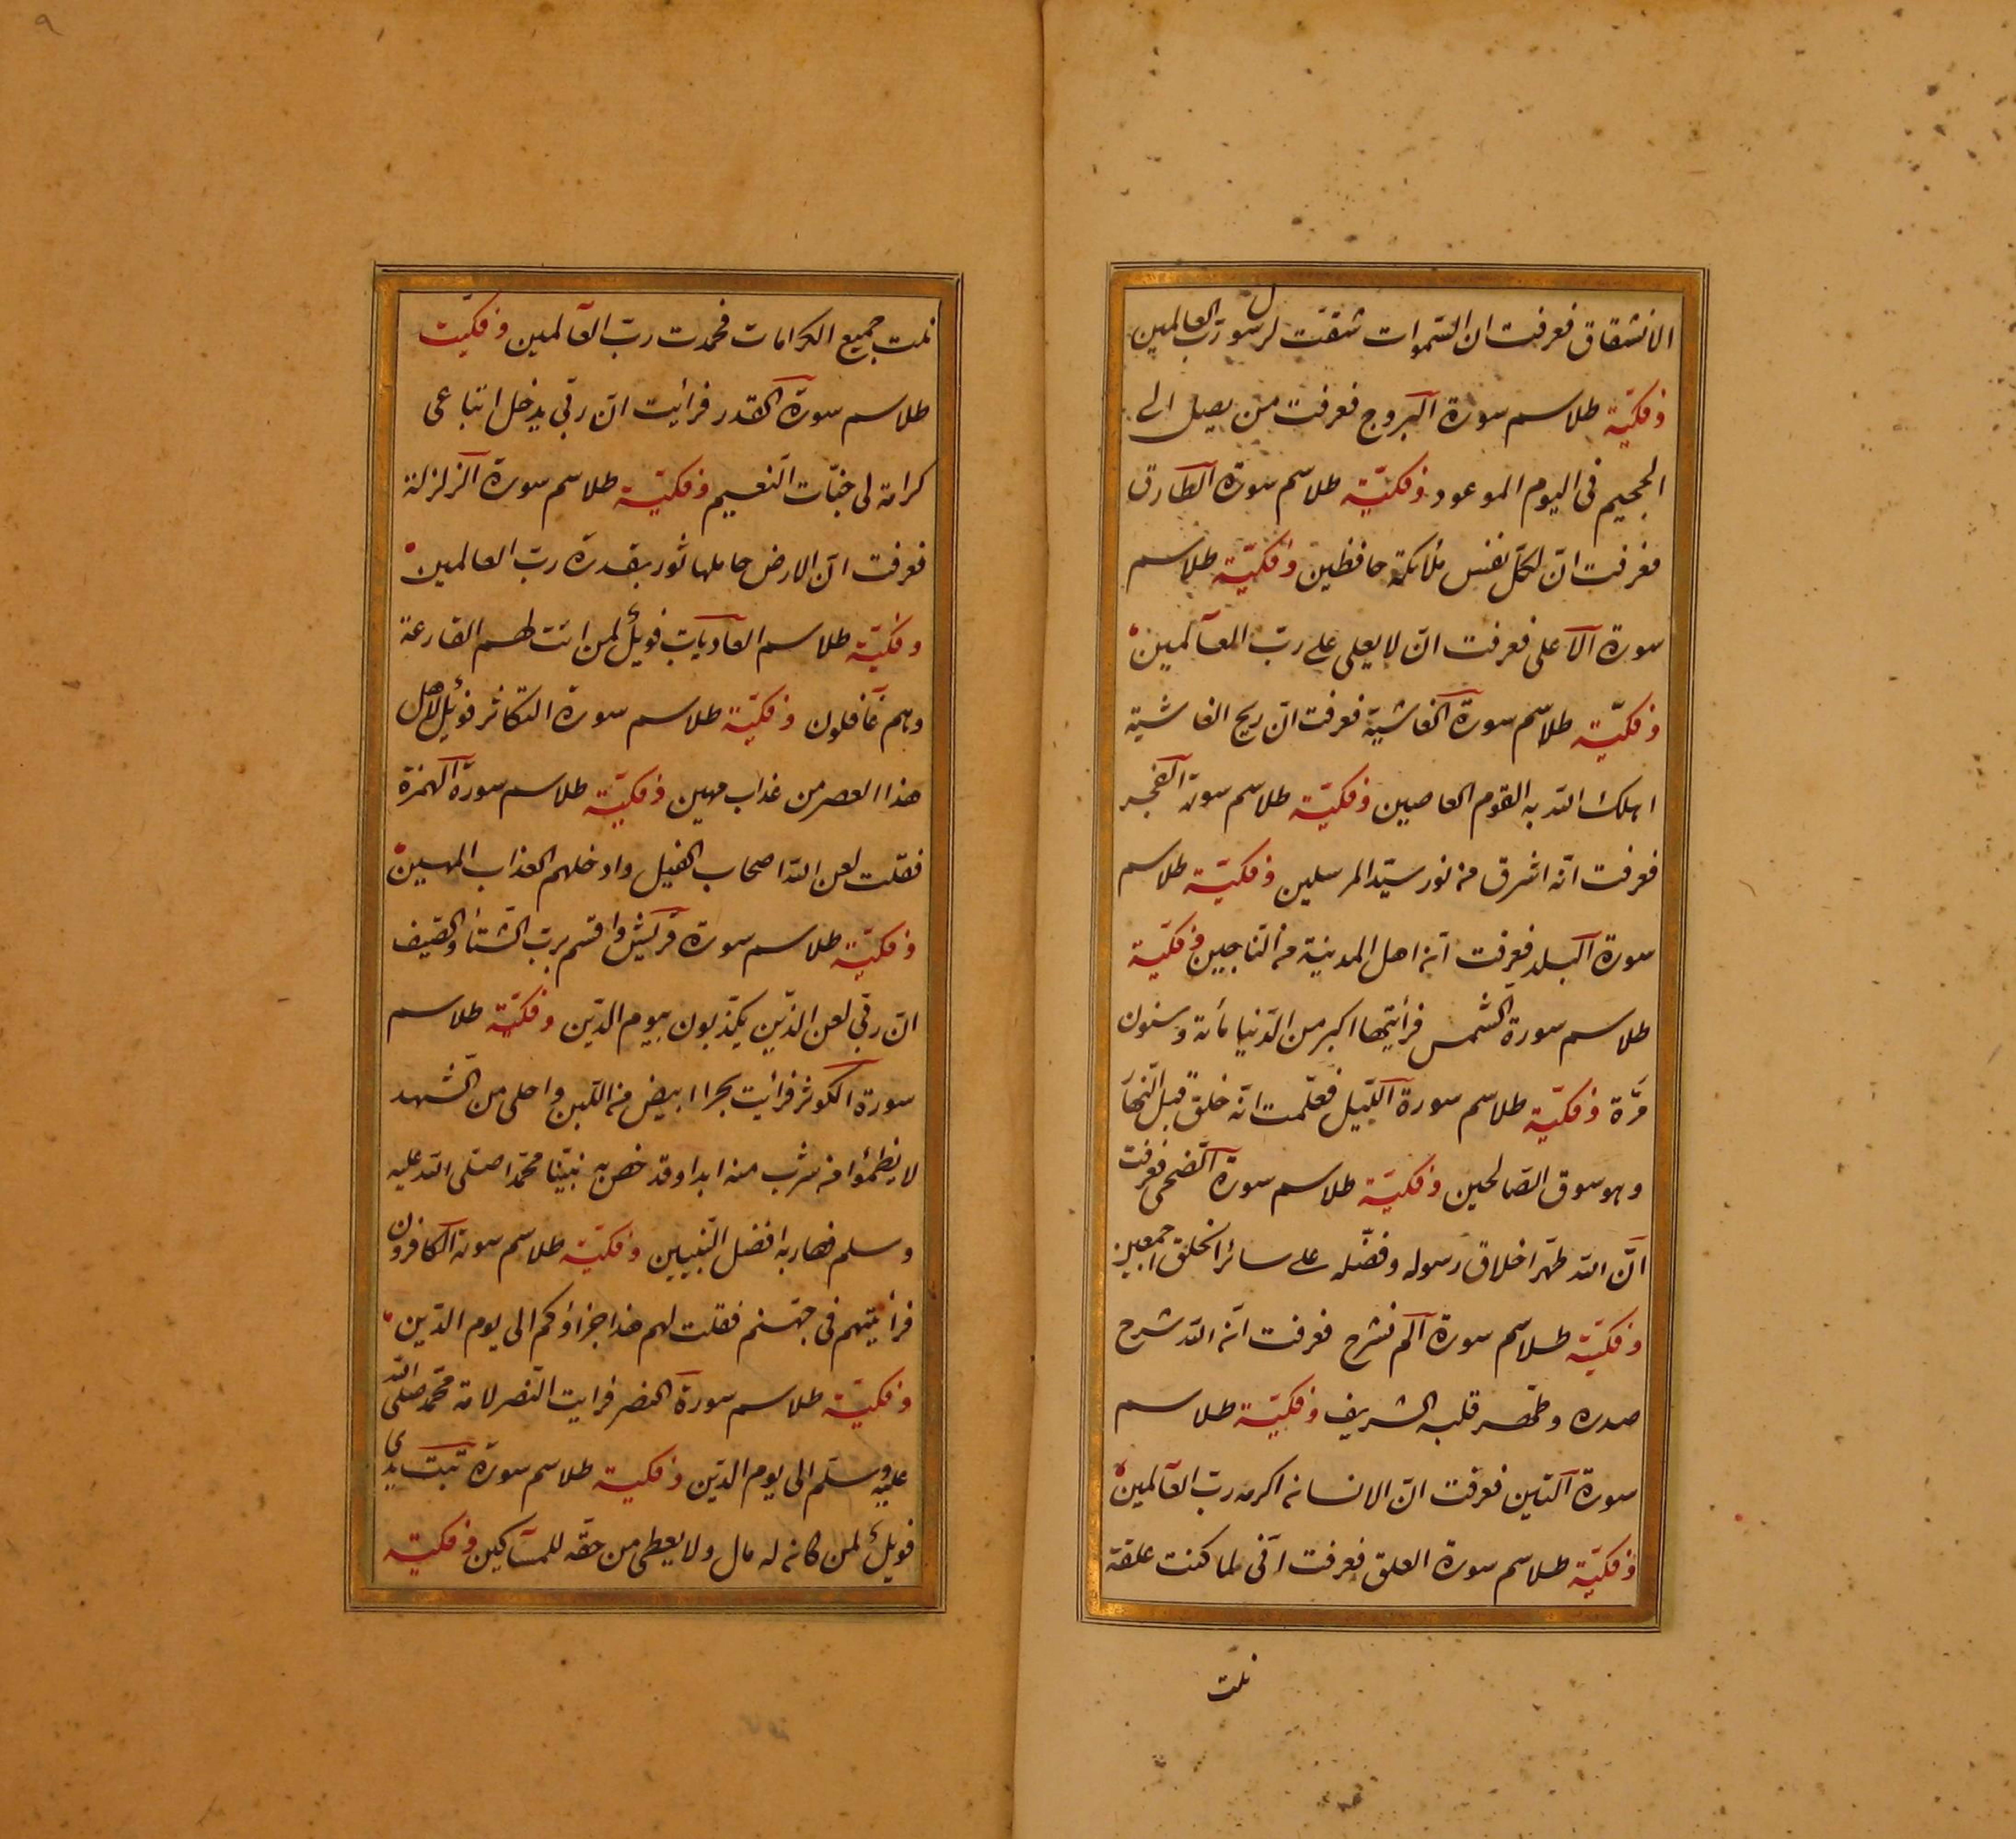 الانشقاق فعرفت ان السّموات شقّت لرسول ربّ العالمين
وفكيّة طلاسم سورة البروج فعرفت من يصل الى
الجحيم فى اليوم الموعود وفكيّة طلاسم سورة الطارق
فعرفت انّ لكلّ نفس ملائكة حافظين وفكيّة طلاسم
سورة الاعلى فعرفت ان لا يعلى على ربّ العآلمين
وفكيّة طلاسم سورة الغاشية فعرفت انّ ريح الغاشية
اهلك الله به القوم العاصين وفكيّة طلاسم سورة الفجر
فعرفت انّه اشرق من نور سيّد المرسلين وفكيّة طلاسم
سورة البلد فعرفت انّ اهل المدينة من النّاجين وفكيّة
طلاسم سورة الشمس فرأيتها اكبر من الدّنيا مأة وستون
مرّة وفكيّة طلاسم سورة اللّيل فعلمت انّه خلق قبل النّهار
وهو سوق الصّالحين وفكيّة طلاسم سورة الضّحى فعرفت
انّ الله طهّر اخلاق رسوله وفضّله على سائر الخلق اجمعين
وفكيّة طلاسم سورة الم نشرح فعرفت انّ الله شرح
صدره وطهّر قلبه الشريف وفكيّة طلاسم
سورة التين فعرفت انّ الانسان اكرمه ربّ العآلمين
وفكيّة طلاسم سورة العلق فعرفت انّى لما كنت علقة
نلت
نلت جميع الكرامات فحمدت ربّ العآلمين وفكيّت
طلاسم سورة القدر فرأيت انّ ربّى يدخل اتباعى
كرامة لى جنّات النّعيم وفكيّة طلاسم سورة الزلزلة
فعرفت انّ الارض حاملها ثور بقدرة ربّ العالمين
وفكيّة طلاسم العآديات فويل لمن اتت لهم القارعة
وهم غآفلون وفكيّة طلاسم سورة التكاثر فويل لاهل
هذا العصر من عذاب مهين وفكيّة طلاسم سورة الهمزة
فقلت لعن الله اصحاب الفيل وادخلهم العذاب المهين
وفكيّة طلاسم سورة قريش واقسم بربّ الشّتاء والصّيف
انّ ربّى لعن الذّين يكذّبون بيوم الدّين وفكيّة طلاسم
سورة الكوثر فرأيت بحرا ابيض من اللّبن واحلى من الشّهد
لا يظمئوا من شرب منه ابدا وقد خصّ به نبيّنا محمّدا صلّى الله عليه
وسلم فصار به افضل النّبيين وفكيّة طلاسم سورة الكافرون
فرأيتهم فى جهنّم فقلت لهم هذا جزاؤكم الى يوم الدّين
وفكيّة طلاسم سورة النصر فرايت النّصر لامة محمّد صلى الله
عليه وسلّم الى يوم الدّين وفكيّة طلاسم سورة تبّت يدى
فويل لمن كان له مال ولا يعطى من حقّه للمسآكين وفكيّة